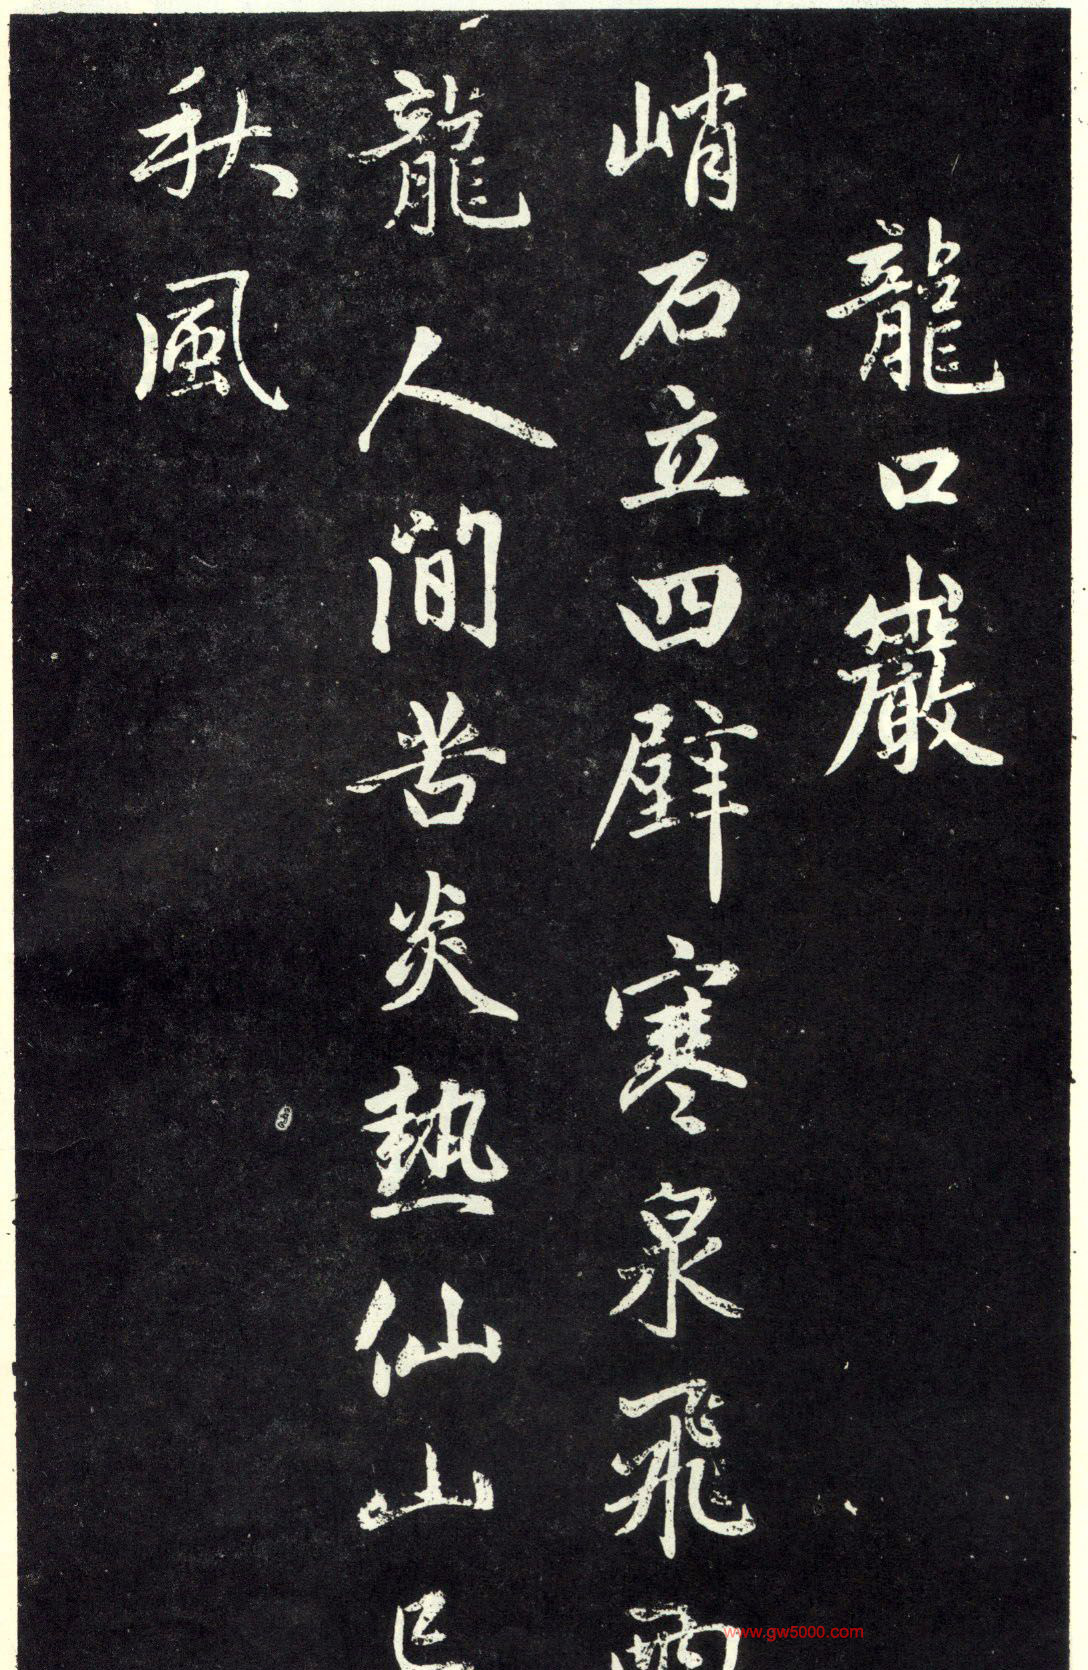 龍口巖
峭石立四壁寒泉飛兩
龍人間苦炎熱仙山已
秋風
www.gw5000.com